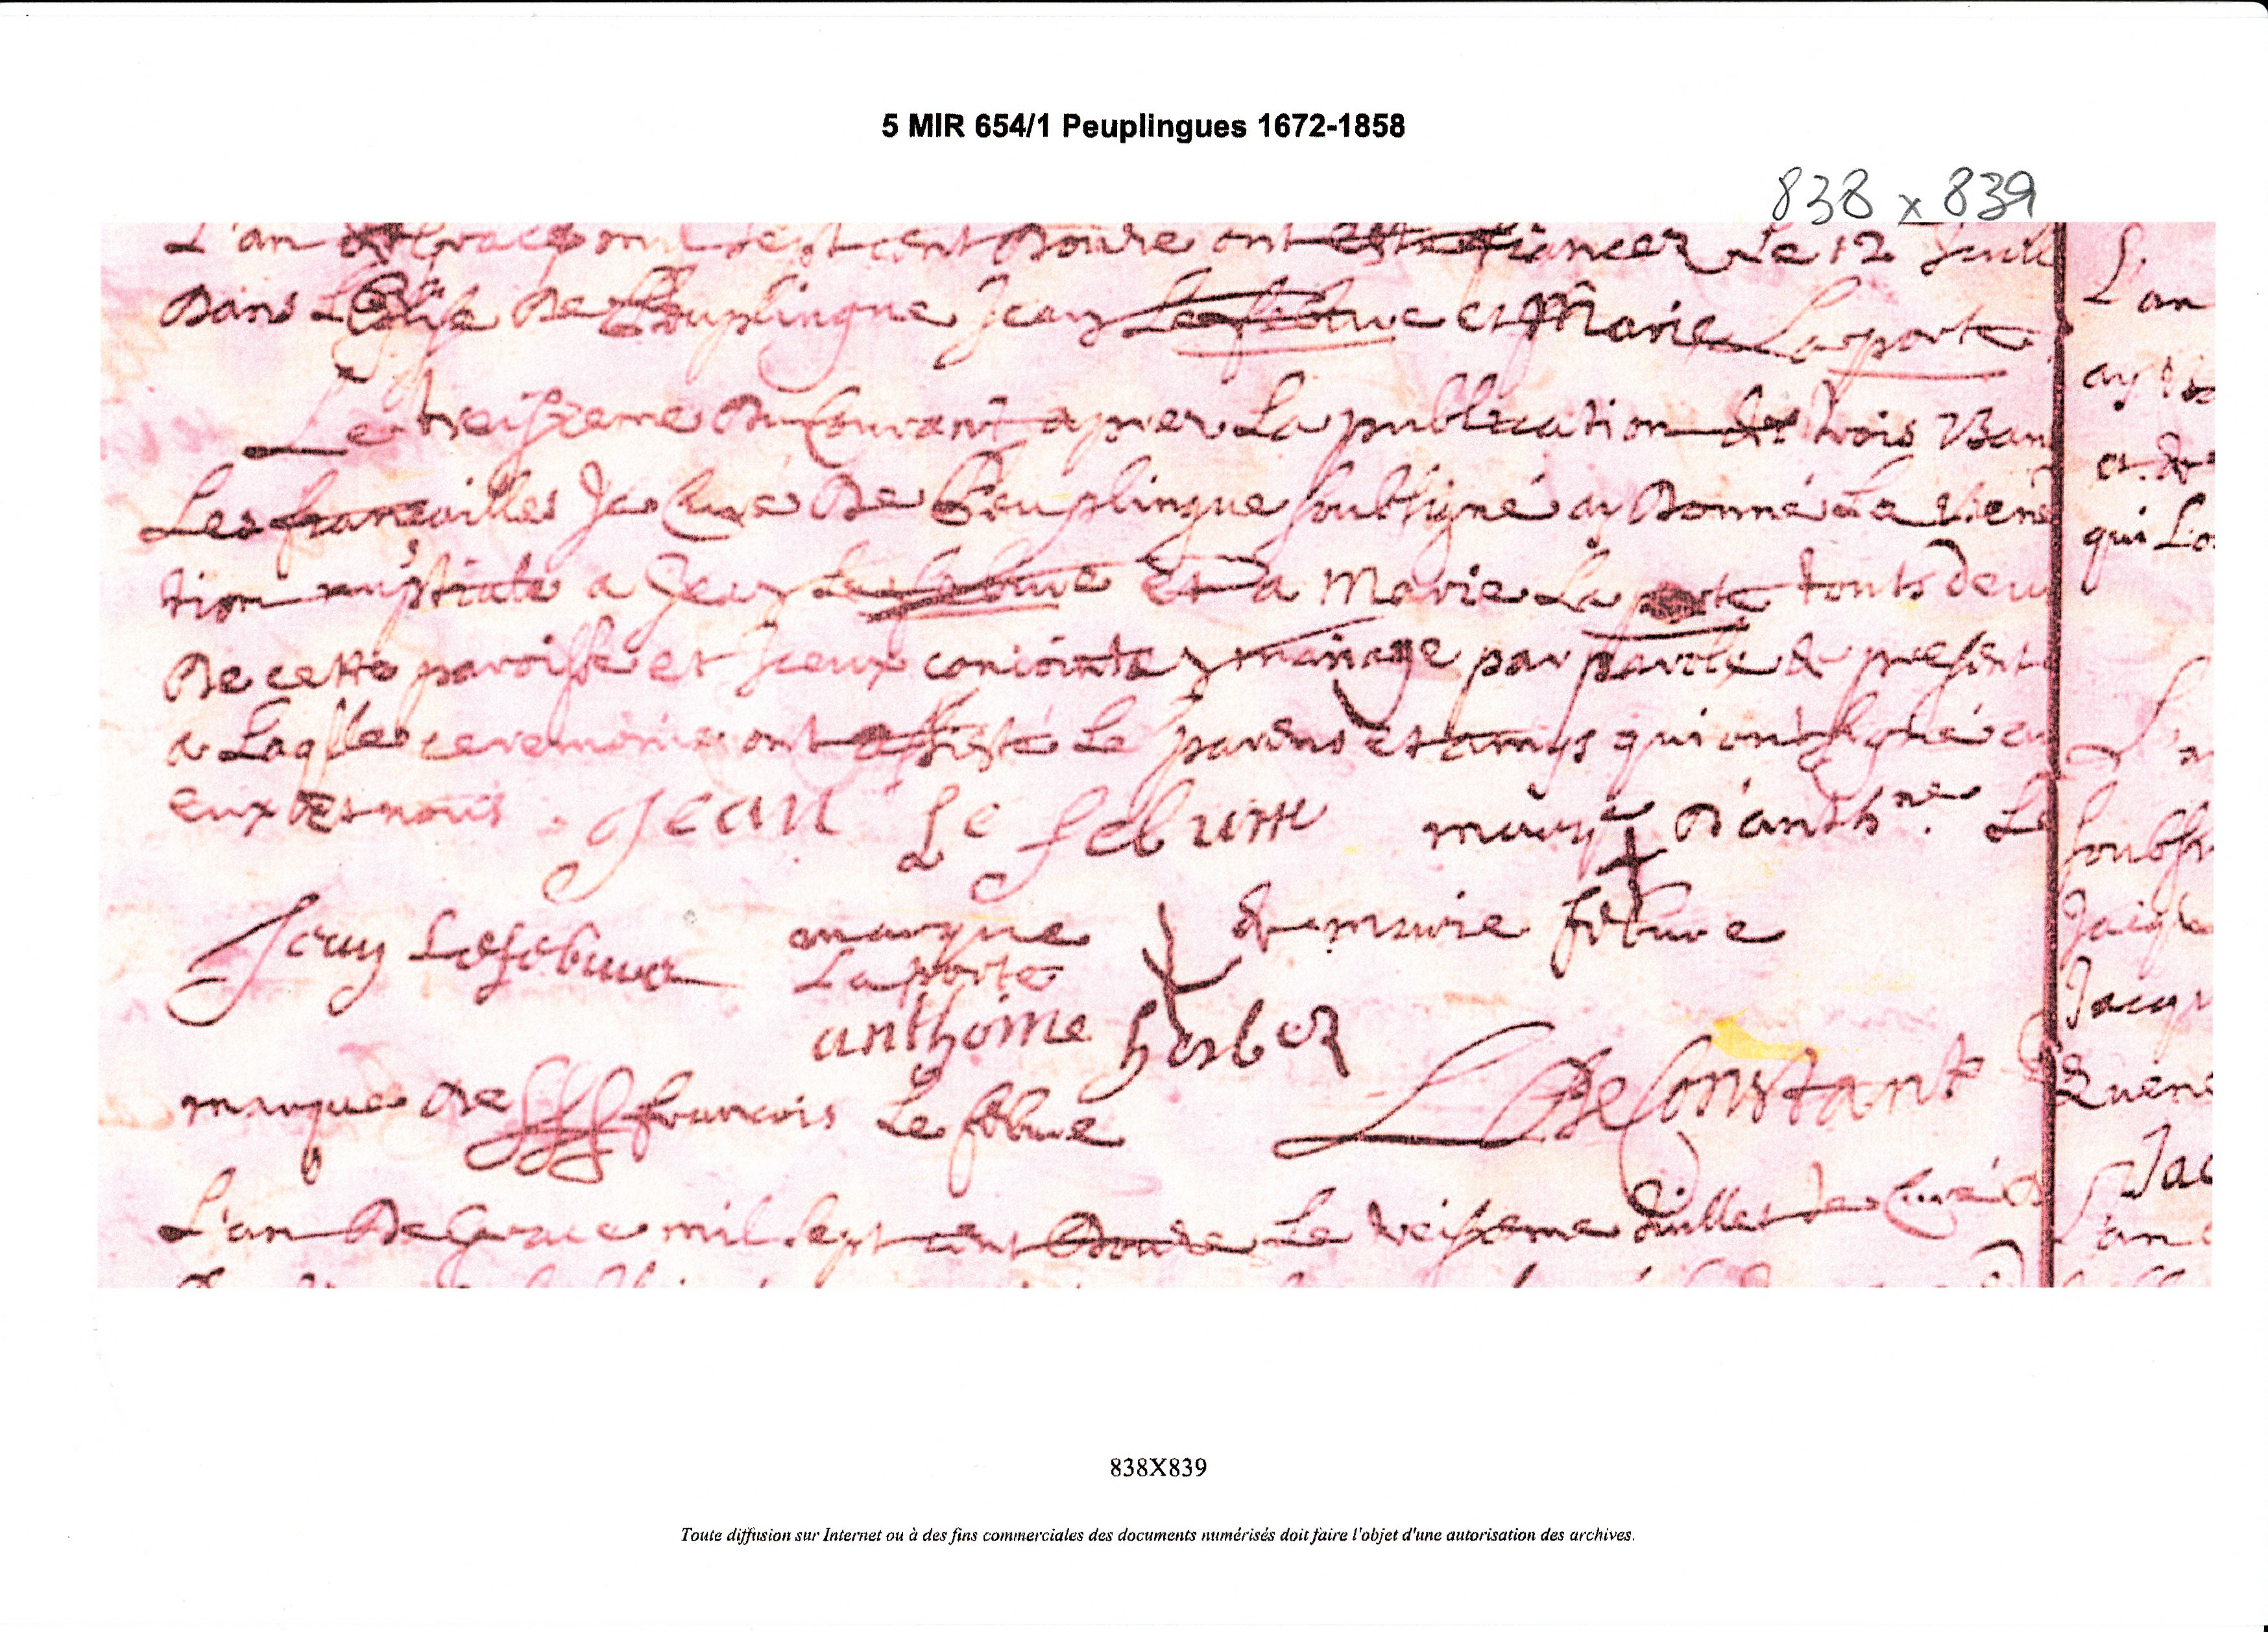 5 MIR 654/1 Peuplingues 1672-1858
838 x 839
L'an de Grace mil sept cent Douze ont esté fiancez Le 12 Juill
Dans L'Eglise De Peuplingue Jean Le febvre et Marie Laporte
Le treiszeme Du Courant aprez La publication de trois Ban
Les fiancailles Je Curé De Peuplingue soubsigné ay Donné La Bene
tion nuptiale a Jean Le febvre Et a Marie La porte touts deux
De cette paroisse et Iceux conioints mariage par parole de present
a Laqlle ceremonie ont assisté Le parens et amys qui ont signé av
eux Et nous Jean Le febvre marq D'anthne La
Jean Lefebuure marque de marie febuve
Laporte
anthoine herber
marque de francois Le febvre L De Constant
L'an De Grace mil sept cent Douze Le treiseme Juillet Je Curé d
L'an
ay
et de
qui Lo
L'a
soubsi
Jacq
Quene
Jac
L'an
838X839
Toute diffusion sur Internet ou à des fins commerciales des documents numérisés doit faire l'objet d'une autorisation des archives.